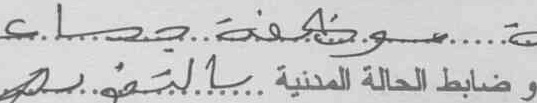 ة ..... موظفة جماعة
و ضابط الحالة المدنية ..... بالتفويض